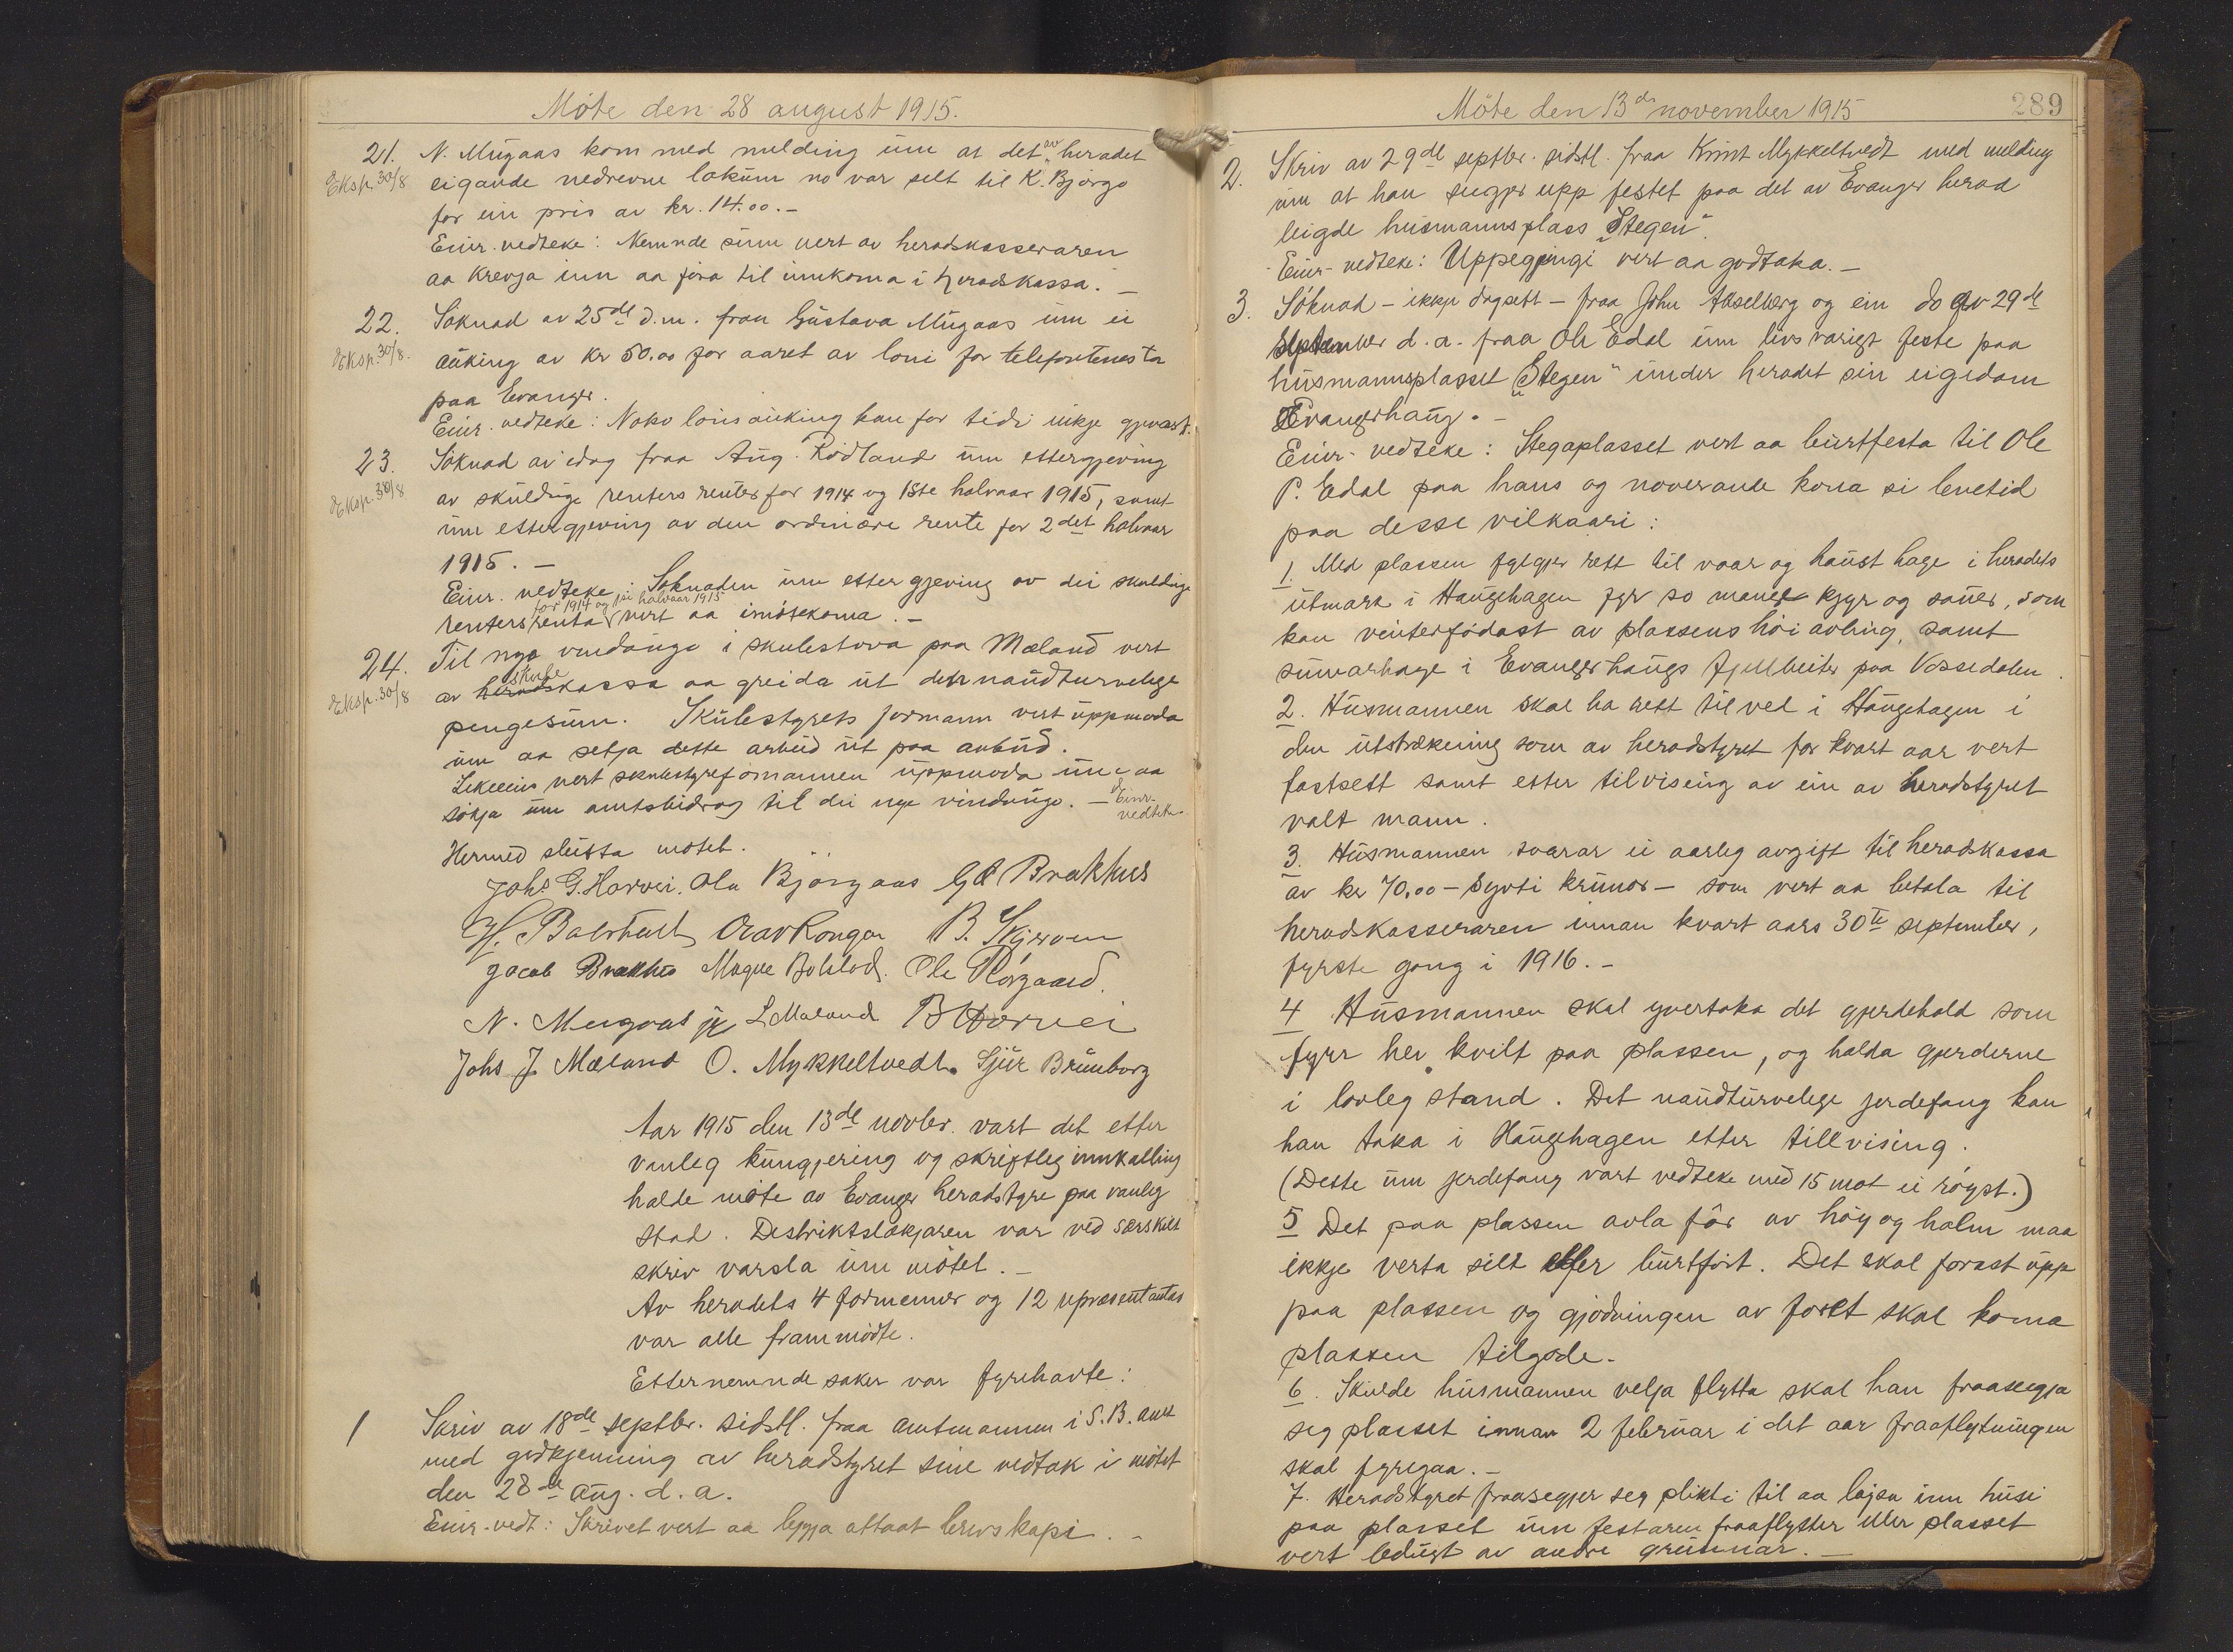 Möte den 28 august 1915.
21. N. Mügaas kom med melding üm at det av heradet
Eksp. 30/8 eigande nedrevne lokum no var selt til K. Björgo
for ein pris av kr. 14.00.-
Einr. vedteke: Nemnde süm vert av heradskasseraren
aa krevja inn aa föra til innkoma i heradskassa. -
22. Söknad av 25de d.m. fraa Güstava Mügaas üm ei
Eksp. 30/8. aüking av kr 50.00 for aaret av löni for telefontenesta
paa Evanger.
Einr. vedteke: Noko lönsaüking kan for tidi inkje gjevast.
23. Söknad av idag fraa Aüg. Rödland üm ettergjeving
Eksp. 30/8 av sküldige renters renter for 1914 og 1ste halvaar 1915, samt
üm ettergjeving av den ordinære rente for 2det halvaar
1915. -
Einr. vedteke: Söknaden üm ettergjeving av dei skuldige
for 1914 og 1ste halvaar 1915
renters renta vert aa imötekoma. -
24. Til nye vindaügo i skulestova paa Mæland vert
skule
Eksp. 30/8 av heradskassa aa greida üt den naüdturvelege
pengesüm. Skülestyrets formann vert üppmoda
üm aa setja dette arbeid üt paa anbüd.
Likeeins vert skulestyreformannen üppmoda üm aa
sökja üm amtsbidrag til dei nye vindaügo. - Einr.
vedteke
Hermed slüsta mötet.
Johs G. Horvei. Ola Björgaas G A Brakhus
H. Bolstad Olav Rongen B. Skjerven
Jacob Brakhus Magne Bolstad. Ole Horgaard.
N. Mugaas jr L Mæland B Horvei
Johs J. Mæland O. Mykkeltvedt. Sjür Brünborg
Aar 1915 den 13de novbr. vart det etter
vanleg küngjering og skriftleg innkalling
halde möte av Evanger heradstyre paa vanleg
stad. Destriktslækjaren var ved særskilt
skriv varsla üm mötet. -
Av heradets 4 formenner og 12 representantar
var alle frammödte.
Etternemnde saker var fyrehavte:
1 Skriv av 18de septbr. sidstl. fraa amtmannen i S.B. amt
med godkjenning av heradstyret sine vedtak i mötet
den 28de aüg. d.a.
Einr. vedt: Skrivet vert aa leggja attaat brevskapi. -
Möte den 13de november 1915
289
2. Skriv av 29de septbr. sidstl. fraa Knut Mykkeltvedt med melding
üm at han seigjer upp festet paa det av Evanger herad
leigde hüsmannsplass „Stegen“.
Einr. vedteke: Uppsegjingi vert aa godtaka. -
3. Söknad - ikkje dagsett - fraa John Akselberg og ein do av 29de
september d.a. fraa Ole Edal üm livsvarigt feste paa
hüsmannsplasset „Stegen“ ünder heradet sin eigedom
Evangerhaüg. -
Einr. vedteke: Stegaplasset vert aa bürtfesta til Ole
P. Edal paa hans og noverande kona si levetid
paa desse vilkaari:
1. Med plassen fylgjer rett til vaar og haüst hage i heradets
ütmark i Haügehagen fyr so mange kjyr og saüer, som
kan vinterfödast av plassens höiavling, samt
sümarhage i Evangerhaügs fjellbeiter paa Vossedalen.
2. Hüsmannen skal ha rett til ved i Haügehagen i
den ütstrækning som av heradstyret for kvart aar vert
fastsett samt etter tilvising av ein av heradstyret
valt mann.
3. Hüsmannen svarar ei aarleg avgift til heradskassa
av kr 70.00 - sytti krünor - som vert aa betala til
heradskasseraren innan kvart aars 30te september,
fyrste gong i 1916. -
4 Hüsmannen skal yvertaka det gjerdehald som
fyrr hev kvilt paa plassen, og halda gjerderne
i lovleg stand. Det naüdtürvelege gjerdefang kan
han taka i Haügehagen etter tillvising.
(Dette üm gjerdefang vart vedteke med 15 mot ei röyst.)
5 Det paa plassen avla fôr av höy og halm maa
ikkje verta selt eller bürtfört. Det skal forast üpp
paa plassen og gjödningen av foret skal koma
plassen tilgode.
6. Skülde hüsmannen velja flytta skal han fraasegja
seg plasset innan 2 februar i det aar fraaflytningen
skal fyregaa. -
7. Heradstyret fraasegjer seg plikti til aa löysa inn hüsi
paa plasset üm festaren fraaflytter eller plasset
vert ledügt av andre grünnar. -